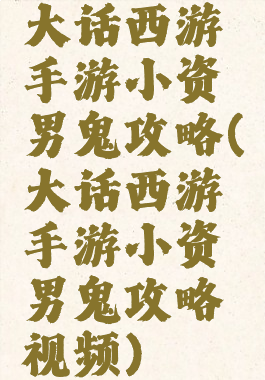 大话西游
手游小资
男鬼攻略(
大话西游
手游小资
男鬼攻略
视频)